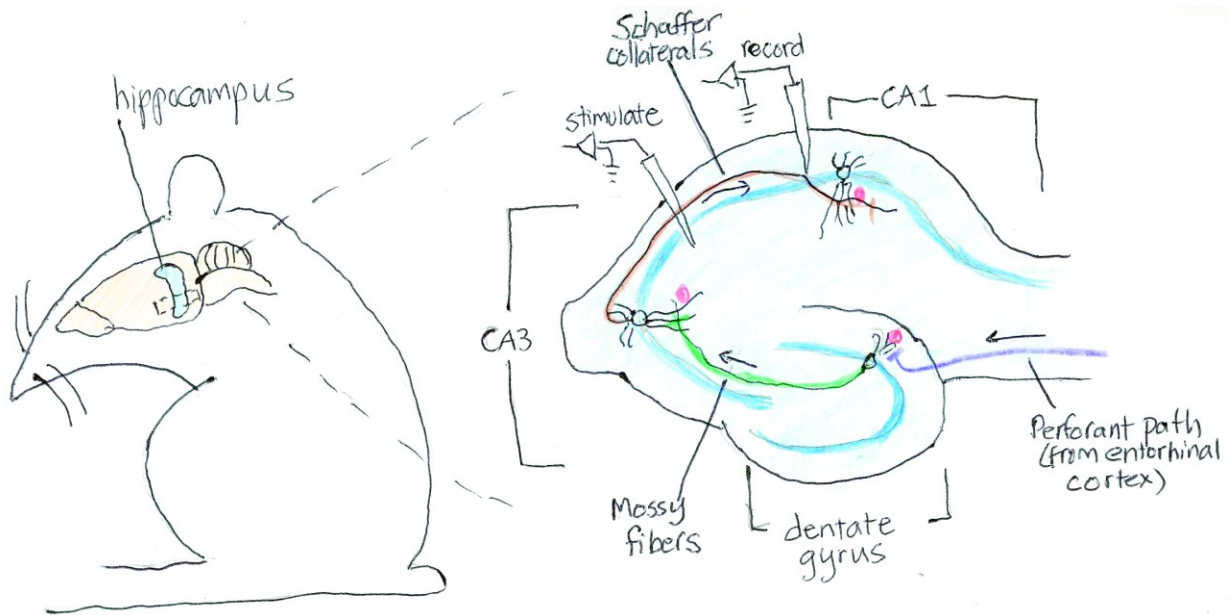 hippocampus
Schaffer
collaterals
record
stimulate
CA1
CA3
Mossy
fibers
dentate
gyrus
Perforant path
(from entorhinal
cortex)